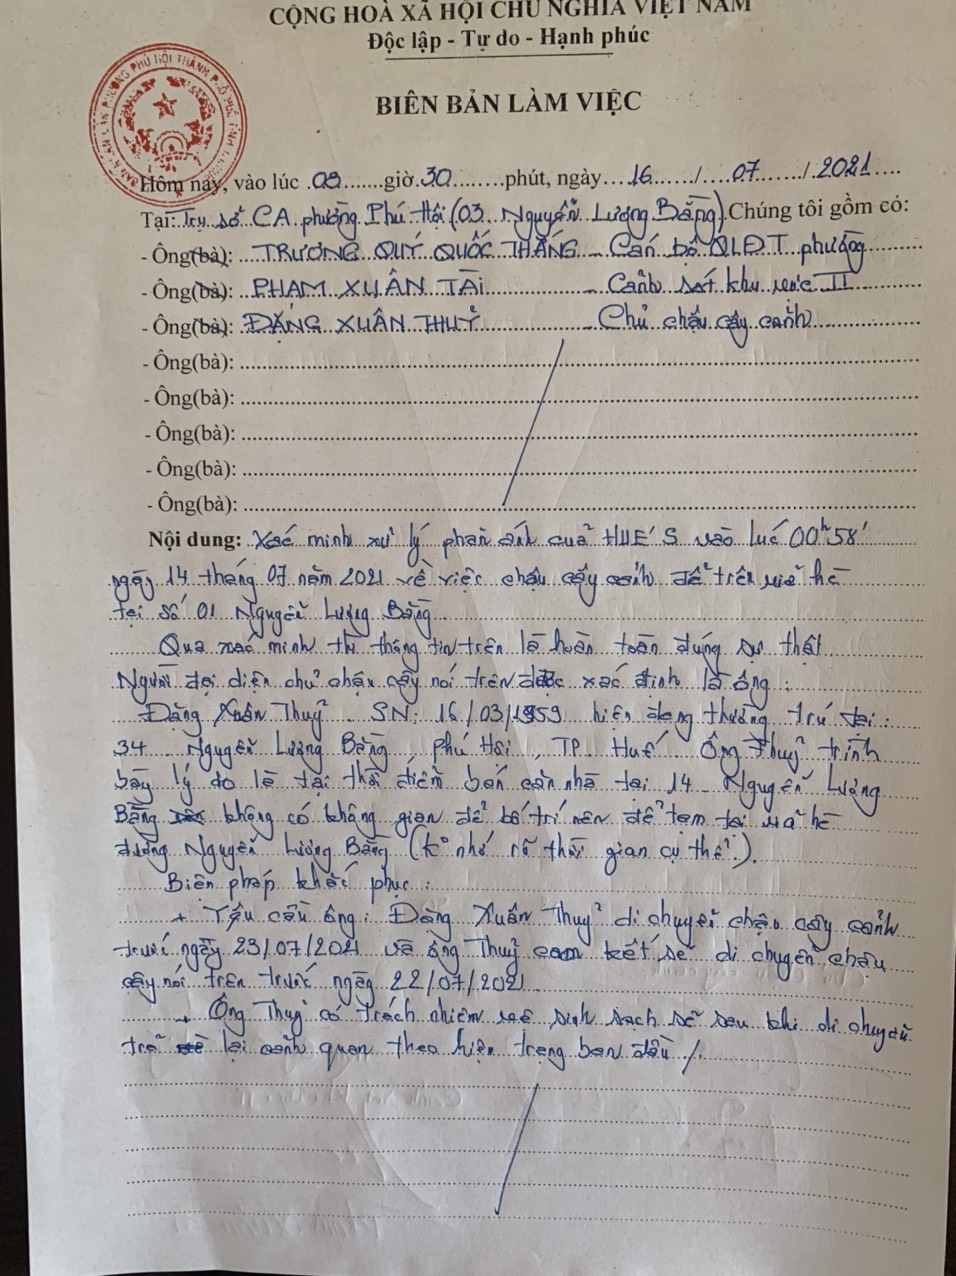 CỘNG HOÀ XÃ HỘI CHỦ NGHĨA VIỆT NAM
Độc lập - Tự do - Hạnh phúc
BIÊN BẢN LÀM VIỆC
Hôm nay, vào lúc 08 giờ 30 phút, ngày 16 / 07 / 2021
Tại: Trụ sở CA phường Phú Hội (03 Nguyễn Lương Bằng). Chúng tôi gồm có:
- Ông(bà): TRƯƠNG QUÝ QUỐC THẮNG - Cán bộ QLĐT phường
- Ông(bà): PHẠM XUÂN TÀI - Cảnh sát khu vực II
- Ông(bà): ĐẶNG XUÂN THUỶ - Chủ chậu cây cảnh
- Ông(bà):
- Ông(bà):
- Ông(bà):
- Ông(bà):
- Ông(bà):
Nội dung: Xác minh xử lý phản ánh của HUE'S vào lúc 00h58'
ngày 14 tháng 07 năm 2021 về việc chậu cây cảnh để trên vỉa hè
tại số 01 Nguyễn Lương Bằng
Qua xác minh thì thông tin trên là hoàn toàn đúng sự thật
Người đại diện chủ chậu cây nói trên được xác định là ông:
Đặng Xuân Thuỷ SN: 16/03/1959 hiện đang thường trú tại:
34 Nguyễn Lương Bằng, Phú Hội, TP Huế Ông Thuỷ trình
bày lý do là tại thời điểm bán căn nhà tại 14 Nguyễn Lương
Bằng không có không gian để bố trí nên để tạm tại vỉa hè
đường Nguyễn Lương Bằng (ko nhớ rõ thời gian cụ thể).
Biện pháp khắc phục:
+ Yêu cầu ông: Đặng Xuân Thuỷ di chuyển chậu cây cảnh
trước ngày 23/07/2021 và ông Thuỷ cam kết sẽ di chuyển chậu
cây nói trên trước ngày 22/07/2021
+ Ông Thuỷ có trách nhiệm vệ sinh sạch sẽ sau khi di chuyển
trả lại cảnh quan theo hiện trạng ban đầu /.